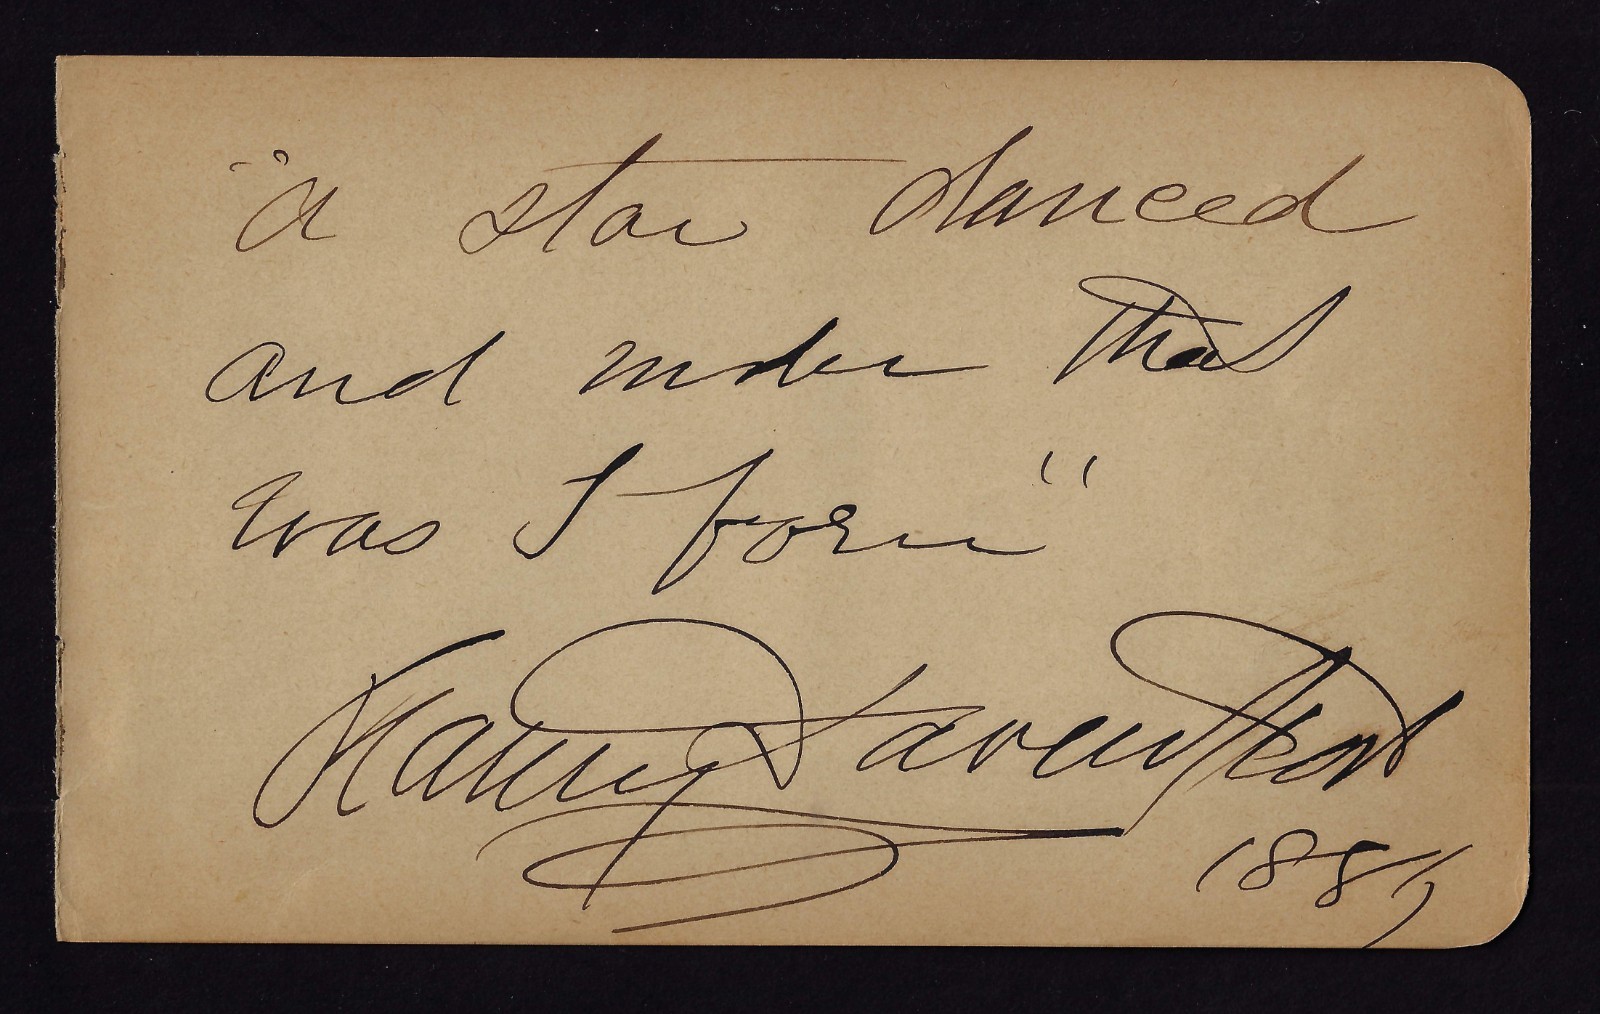 "A star danced
and under that
was I born"
Fanny Davenport
1885